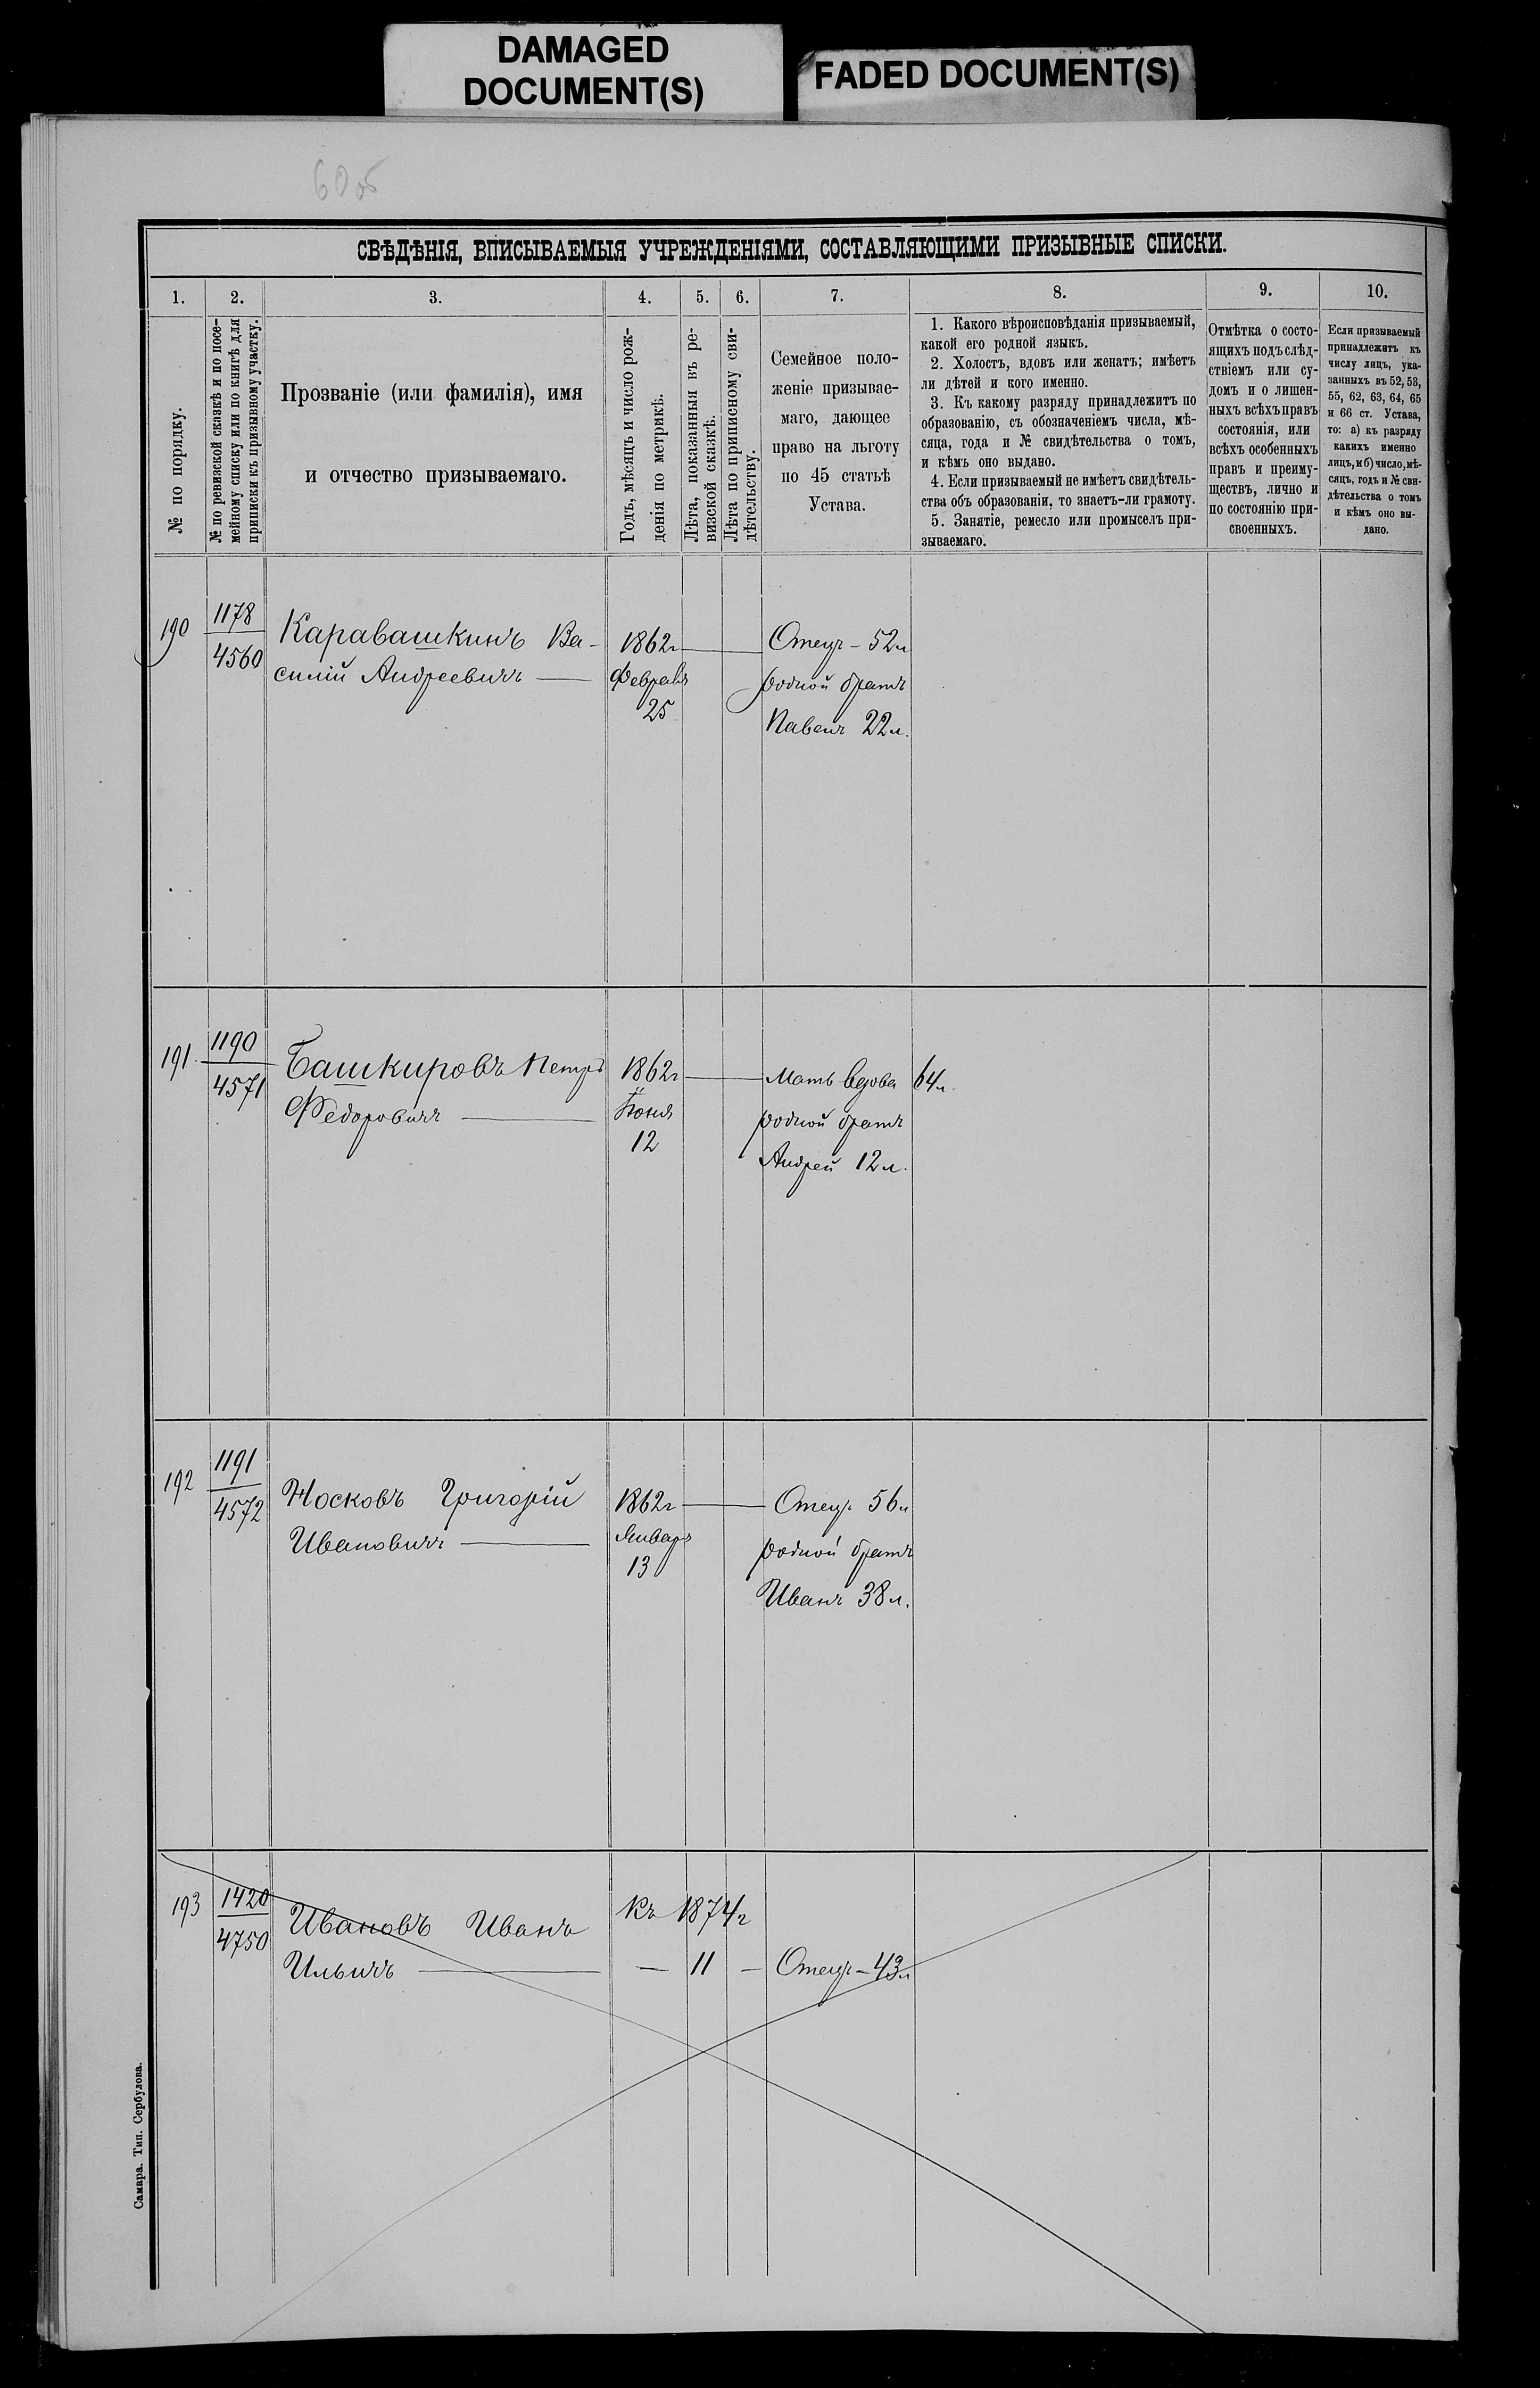 DAMAGED
DOCUMENT(S)
FADED DOCUMENT(S)
60 об
СВѢДѢНІЯ, ВПИСЫВАЕМЫЯ УЧРЕЖДЕНІЯМИ, СОСТАВЛЯЮЩИМИ ПРИЗЫВНЫЕ СПИСКИ.
1. 2. 3. 4. 5. 6. 7. 8. 9. 10.
№ по порядку.
№ по ревизской сказкѣ и по посе-
мейному списку или по книгѣ для
приписки къ призывному участку.
Прозваніе (или фамилія), имя
и отчество призываемаго.
Годъ, мѣсяцъ и число рож-
денія по метрикѣ.
Лѣта, показанныя въ ре-
визской сказкѣ.
Лѣта по приписному сви-
дѣтельству.
Семейное поло-
женіе призывае-
маго, дающее
право на льготу
по 45 статьѣ
Устава.
1. Какого вѣроисповѣданія призываемый,
какой его родной языкъ.
2. Холостъ, вдовъ или женатъ; имѣетъ
ли дѣтей и кого именно.
3. Къ какому разряду принадлежитъ по
образованію, съ обозначеніемъ числа, мѣ-
сяца, года и № свидѣтельства о томъ,
и кѣмъ оно выдано.
4. Если призываемый не имѣетъ свидѣтель-
ства объ образованіи, то знаетъ-ли грамоту.
5. Занятіе, ремесло или промыселъ при-
зываемаго.
Отмѣтка о состо-
ящихъ подъ слѣд-
ствіемъ или су-
домъ и о лишен-
ныхъ всѣхъ правъ
состоянія, или
всѣхъ особенныхъ
правъ и преиму-
ществъ, лично и
по состоянію при-
своенныхъ.
Если призываемый
принадлежитъ къ
числу лицъ, ука-
занныхъ въ 52, 53,
55, 62, 63, 64, 65
и 66 ст. Устава,
то: а) къ разряду
какихъ именно
лицъ, и б) число, мѣ-
сяцъ, годъ и № сви-
дѣтельства о томъ
и кѣмъ оно вы-
дано.
190
1178
4560
Каравашкинъ Ва-
силій Андреевичъ —
1862г
Февраля
25
Отецъ - 52л
родной братъ
Павелъ 22л.
191
1190
4571
Башкировъ Петръ
Федоровичъ —
1862г
Іюня
12
Мать вдова 64л
родной братъ
Андрей 12л.
192
1191
4572
Носковъ Григорій
Ивановичъ —
1862г
Января
13
Отецъ 56л
родной братъ
Иванъ 38л.
193
1420
4750
Ивановъ Иванъ
Ильичъ —
Къ 1874г
— 11 —
Отецъ - 43л
Самара. Тип. Сербулова.